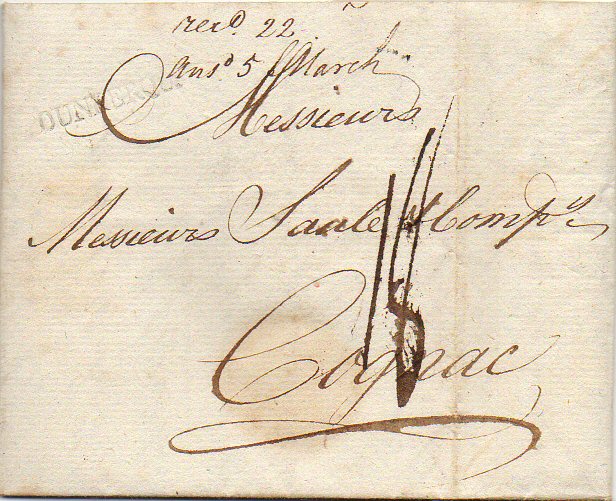 recd. 22
Ansd 5 March
DUNKERQUE
Messieurs
Messieurs Saule & Compy
Cognac